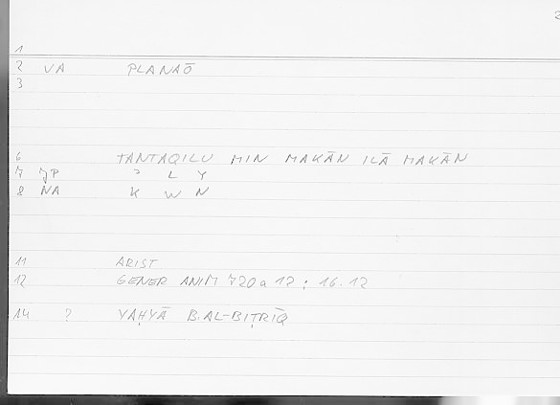 1
2 VA PLANAŌ
3
6 TANTAQILU MIN MAKĀN ILĀ MAKĀN
7 JP ʾ L Y
8 NA K W N
11 ARIST
12 GENER ANIM 720a12 ; 16.12
14 ? YAḤYĀ B. AL-BIṬRĪQ